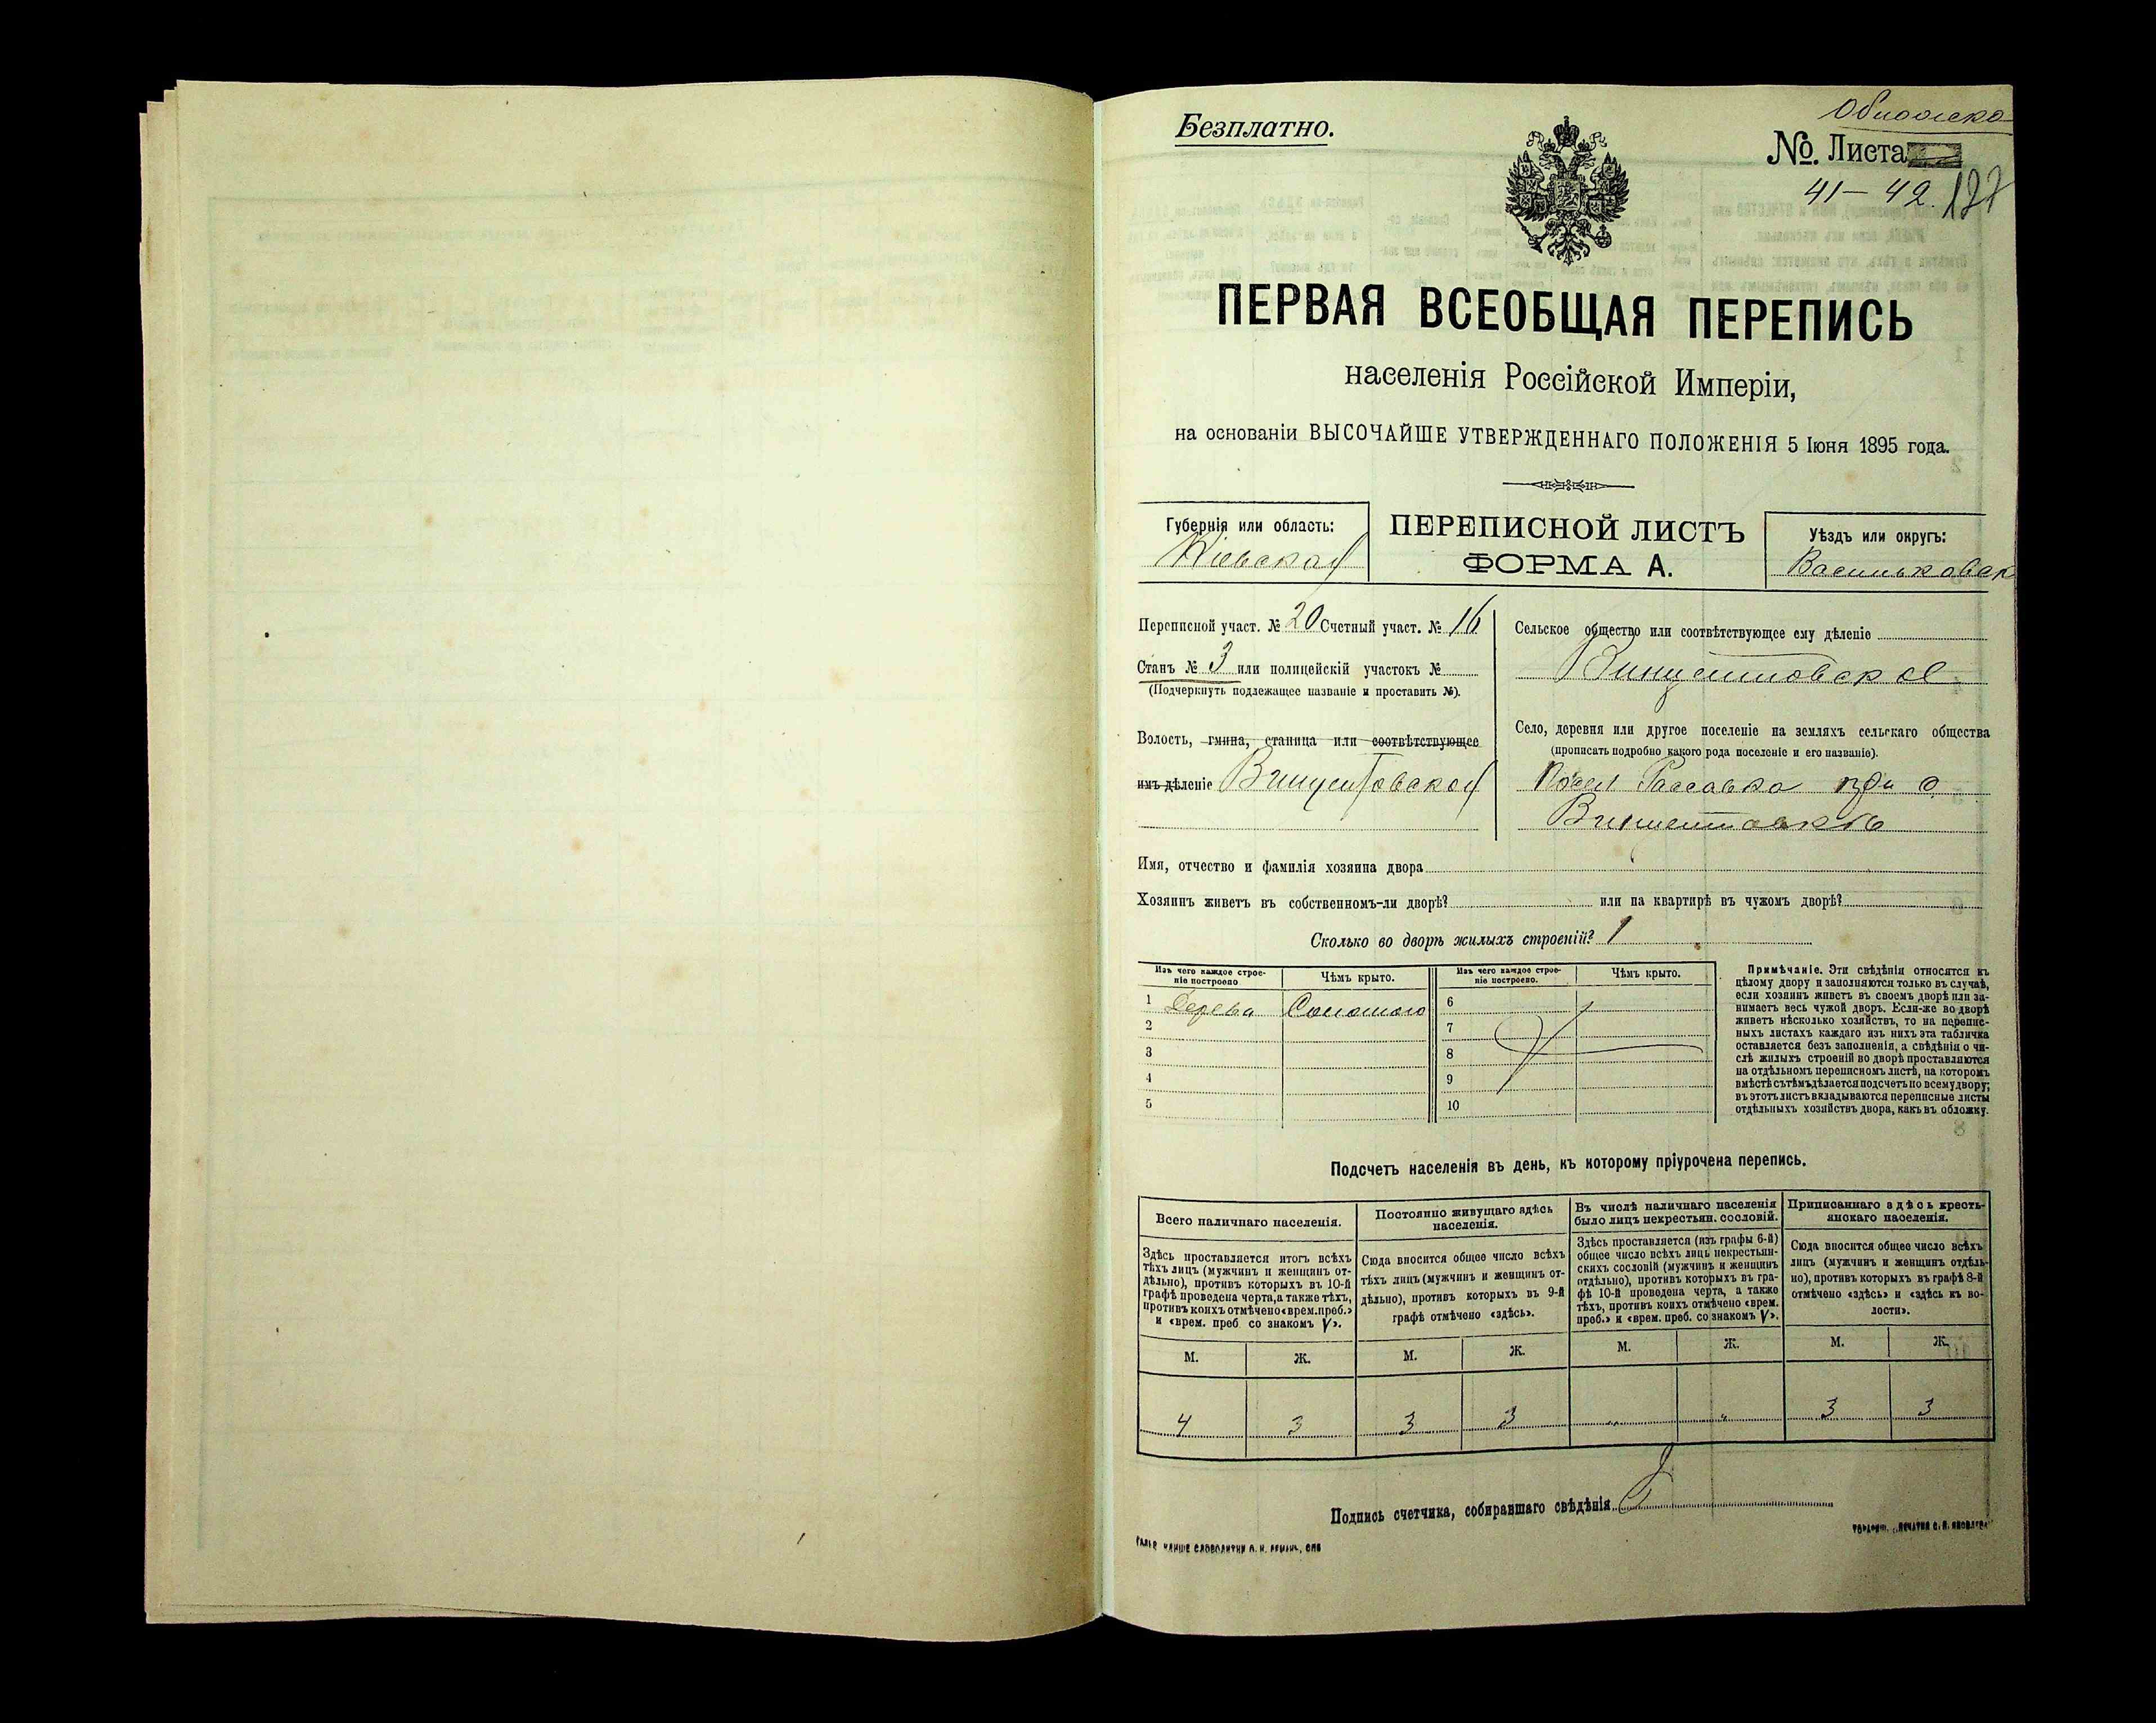 Безплатно.
Обложка
№. Листа
41–42. 127
ПЕРВАЯ ВСЕОБЩАЯ ПЕРЕПИСЬ
населенія Россійской Имперіи,
на основаніи ВЫСОЧАЙШЕ УТВЕРЖДЕННАГО ПОЛОЖЕНІЯ 5 Іюня 1895 года.
Губернія или область:
Кіевская
ПЕРЕПИСНОЙ ЛИСТЪ
ФОРМА А.
Уѣздъ или округъ:
Васильковск
Переписной участ. № 20 Счетный участ. № 16
Станъ № 3 или полицейскій участокъ №
(Подчеркнуть подлежащее названіе и проставить №).
Волость, гмина, станица или соотвѣтствующее
имъ дѣленіе Винцентовская
Сельское общество или соотвѣтствующее ему дѣленіе
Винцентовское
Село, деревня или другое поселеніе на земляхъ сельскаго общества
(прописать подробно какого рода поселеніе и его названіе).
Расавка при с.
Винцентовкѣ
Имя, отчество и фамилія хозяина двора
Хозяинъ живетъ въ собственномъ-ли дворѣ? или на квартирѣ въ чужомъ дворѣ?
Сколько во дворѣ жилыхъ строеній? 1
Изъ чего каждое строе-
ніе построено
Чѣмъ крыто.
Изъ чего каждое строе-
ніе построено.
Чѣмъ крыто.
1 Дерева Соломою
2
3
4
5
6
7
8
9
10
Примѣчаніе. Эти свѣдѣнія относятся къ
цѣлому двору и заполняются только въ случаѣ,
если хозяинъ живетъ въ своемъ дворѣ или за-
нимаетъ весь чужой дворъ. Если-же во дворѣ
живетъ нѣсколько хозяйствъ, то на перепис-
ныхъ листахъ каждаго изъ нихъ эта табличка
оставляется безъ заполненія, а свѣдѣнія о чи-
слѣ жилыхъ строеній во дворѣ проставляются
на отдѣльномъ переписномъ листѣ, на которомъ
вмѣстѣ съ тѣмъ дѣлается подсчетъ по всему двору;
въ этотъ листъ вкладываются переписные листы
отдѣльныхъ хозяйствъ двора, какъ въ обложку.
Подсчетъ населенія въ день, къ которому пріурочена перепись.
Всего наличнаго населенія.
Постоянно живущаго здѣсь
населенія.
Въ числѣ наличнаго населенія
было лицъ некрестьян. сословій.
Приписаннаго здѣсь кресть-
янскаго населенія.
Здѣсь проставляется итогъ всѣхъ
тѣхъ лицъ (мужчинъ и женщинъ от-
дѣльно), противъ которыхъ въ 10-й
графѣ проведена черта, а также тѣхъ,
противъ коихъ отмѣчено «врем. преб.»
и «врем. преб со знакомъ V».
Сюда вносится общее число всѣхъ
тѣхъ лицъ (мужчинъ и женщинъ от-
дѣльно), противъ которыхъ въ 9-й
графѣ отмѣчено «здѣсь».
Здѣсь проставляется (изъ графы 6-й)
общее число всѣхъ лицъ некрестьян-
скихъ сословій (мужчинъ и женщинъ
отдѣльно), противъ которыхъ въ гра-
фѣ 10-й проведена черта, а также
тѣхъ, противъ коихъ отмѣчено «врем.
преб.» и «врем. преб. со знакомъ V».
Сюда вносится общее число всѣхъ
лицъ (мужчинъ и женщинъ отдѣль-
но), противъ которыхъ въ графѣ 8-й
отмѣчено «здѣсь» и «здѣсь къ во-
лости».
М. Ж. М. Ж. М. Ж. М. Ж.
4 3 3 3 „ „ 3 3
Подпись счетчика, собиравшаго свѣдѣнія